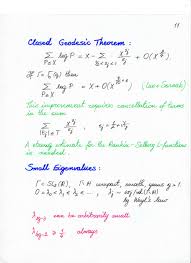 11
Closed Geodesic Theorem :
∑ log P = X - ∑ X^{s_j}/s_j + O(X^{3/4})
P≤X ½<s_j<1
If Γ = Γ_0(q) then
∑ log P = X + O(X^{7/10}) (Luo-Sarnak)
P≤X
This improvement requires cancellation of terms
in the sum
∑ X^{s_j}/s_j , s_j = ½ + i t_j
|t_j| ≤ T
A strong estimate for the Rankin-Selberg L-functions
is needed.
Small Eigenvalues :
Γ ⊂ SL_2(R), Γ\H compact, smooth, genus g > 1.
0 = λ_0 < λ_1 ≤ λ_2 ≤ ...
by Weyl's law
λ_{2g-3} can be arbitrarily small
λ_{4g-2} ≥ ¼ always